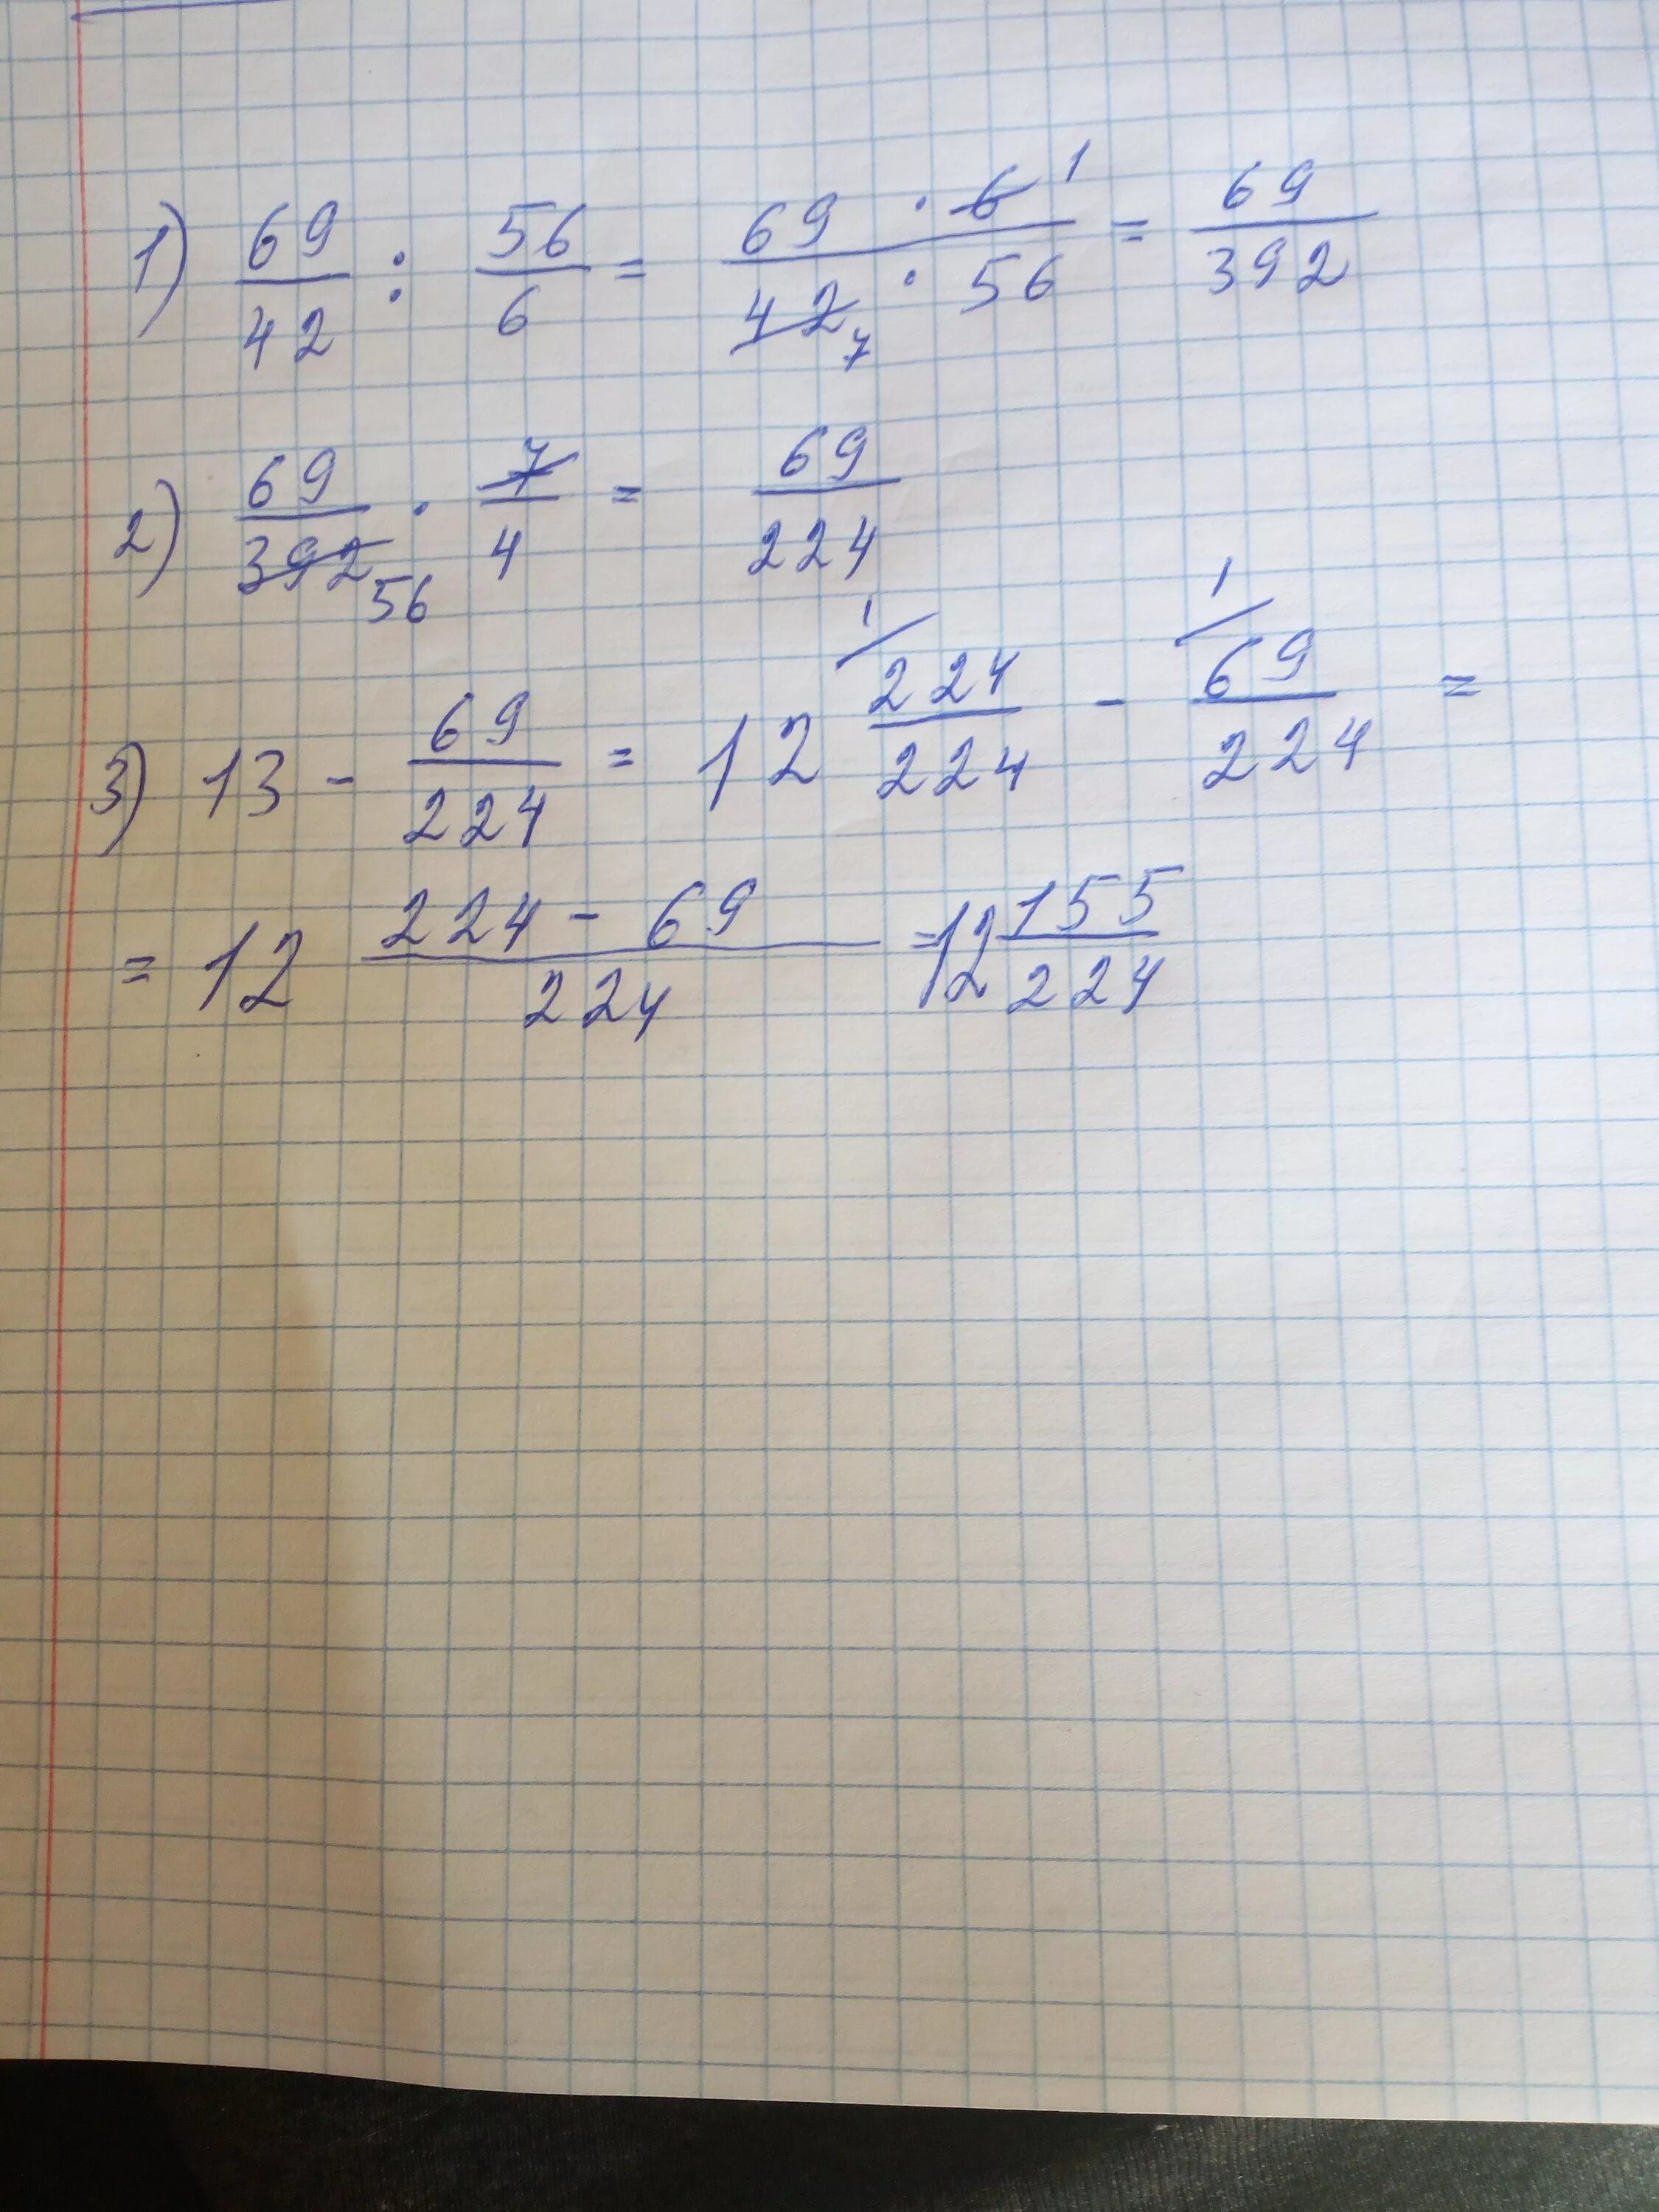 1) 69/42 : 56/6 = 69 · 6 1/42 7 · 56 = 69/392
2) 69/392 56 · 7/4 = 69/224
3) 13 - 69/224 = 12 1/ 224/224 - 1/ 69/224 =
= 12 224 - 69/224 = 12 155/224